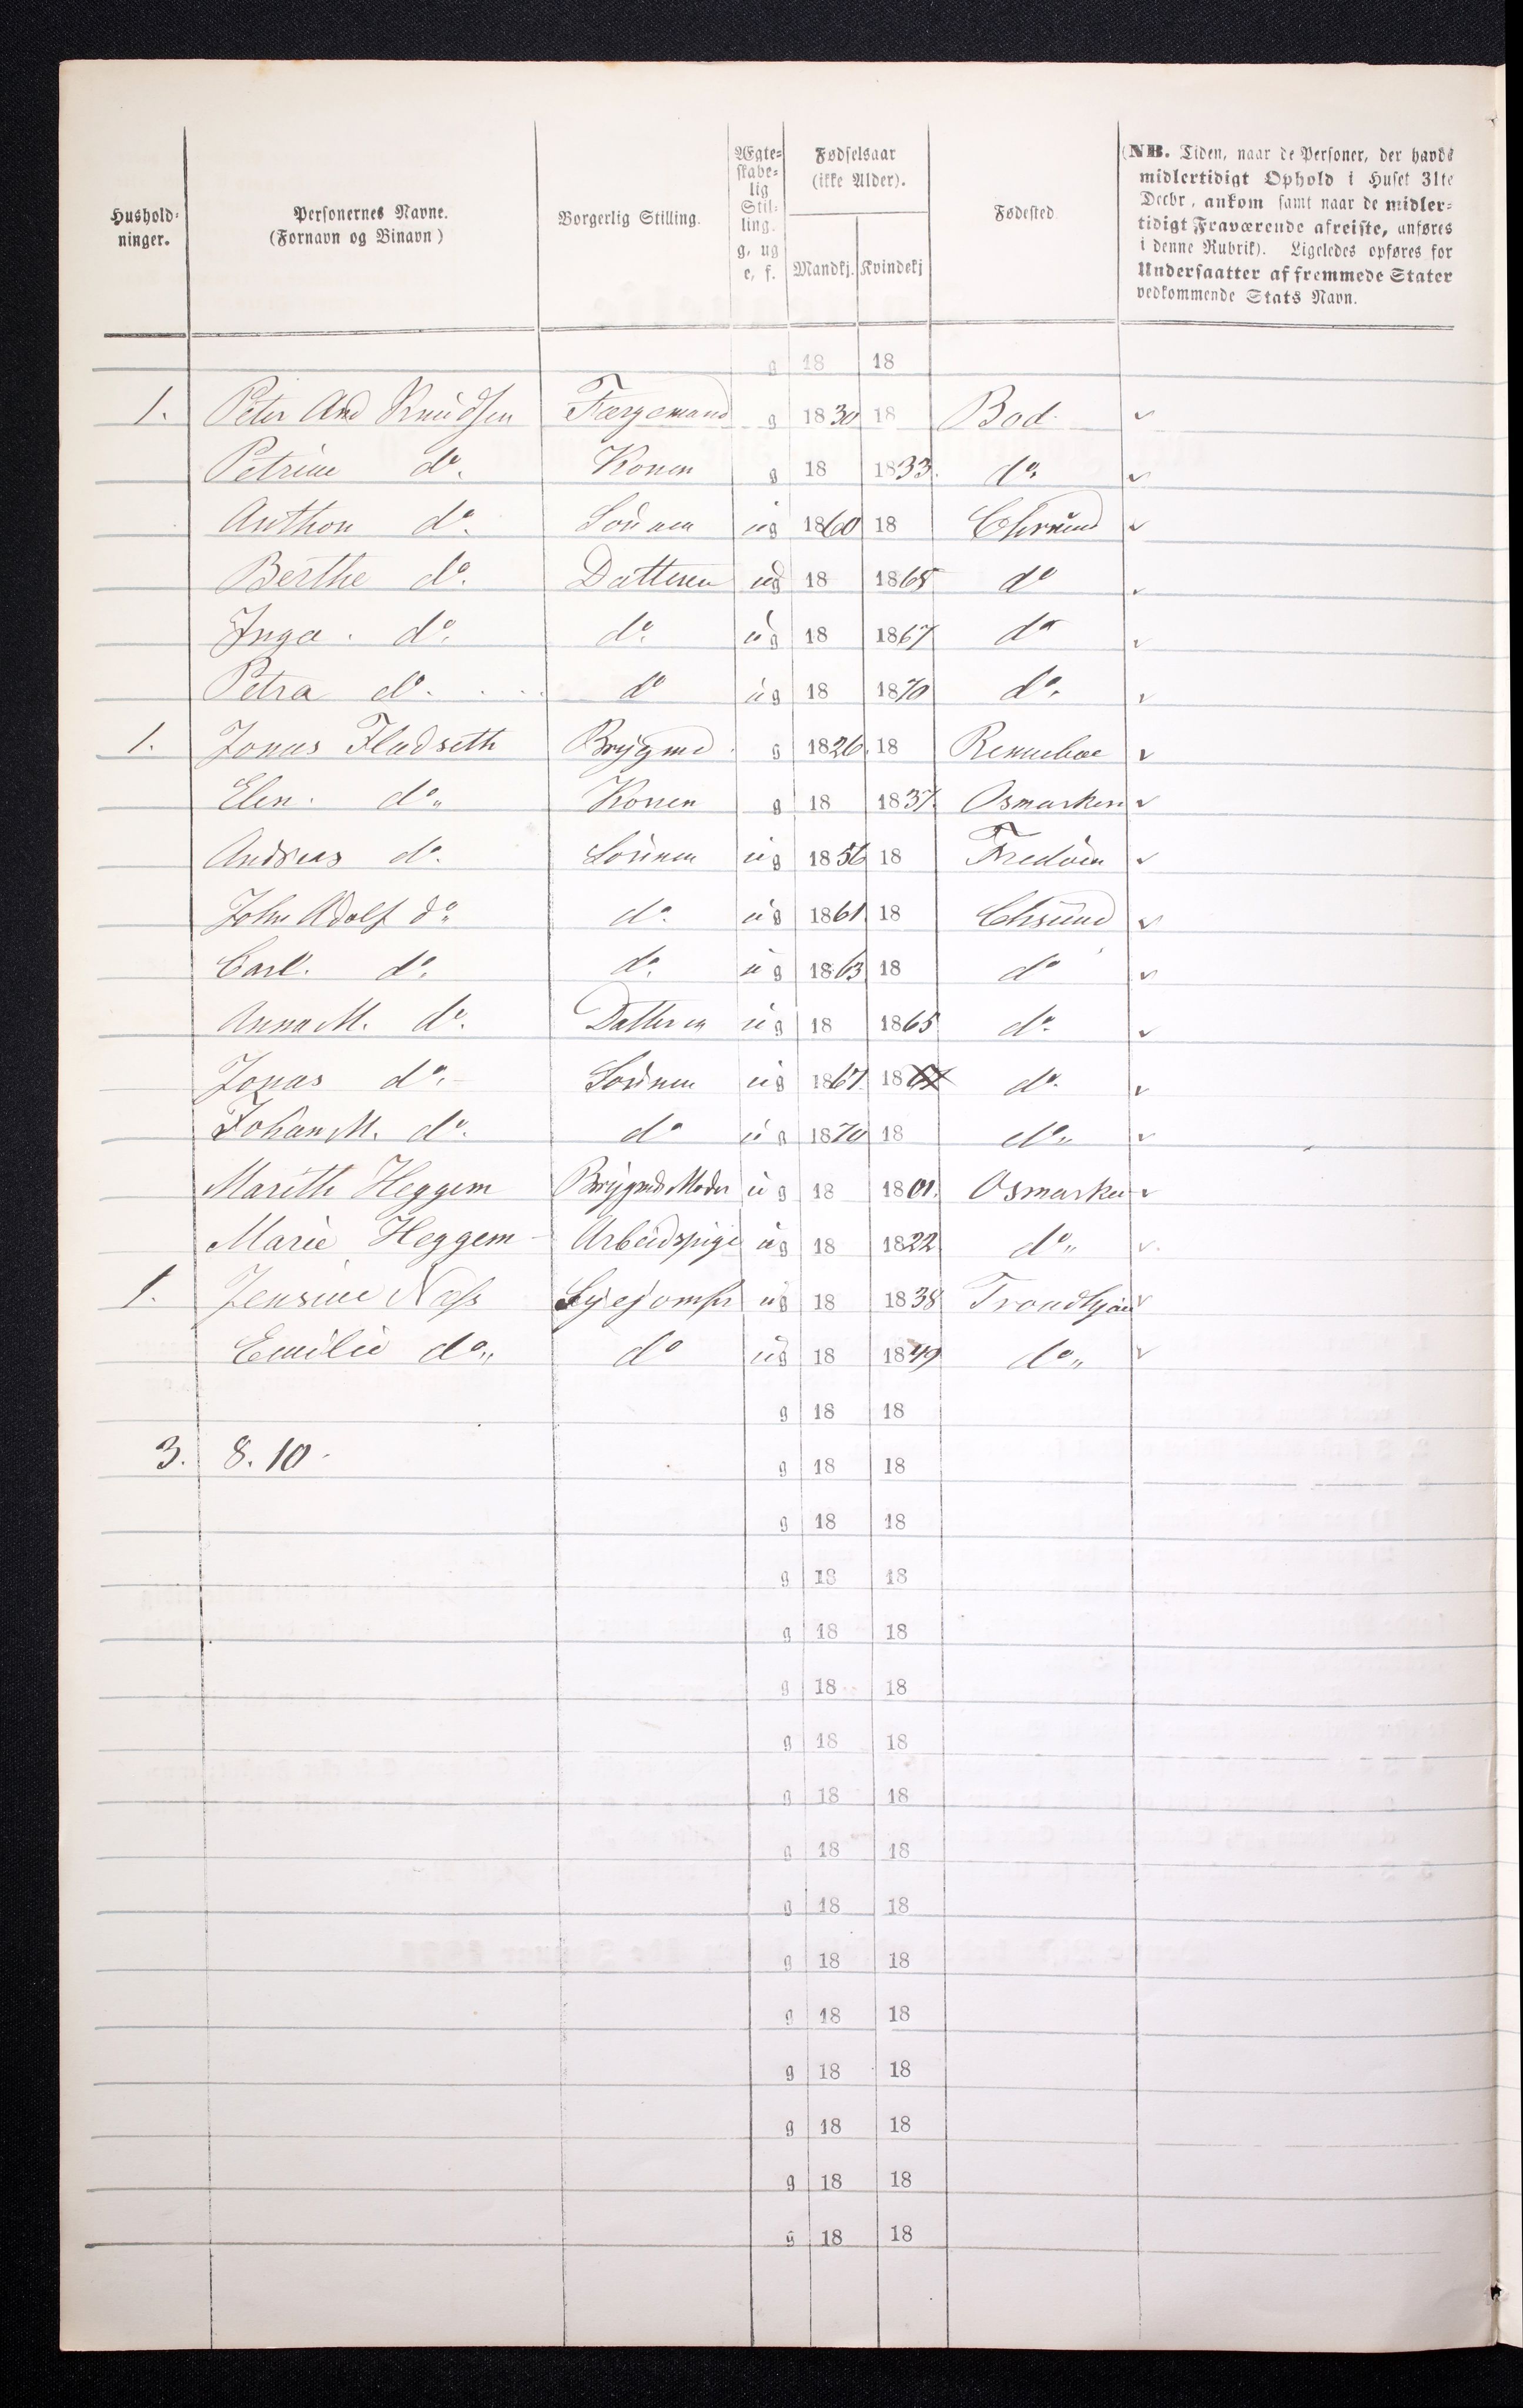 Hushold-
ninger.
Personernes Navne.
(Fornavn og Binavn)
Borgerlig Stilling.
Ægte-
skabe-
lig
Stil-
ling.
g, ug
e, f.
Fødselsaar
(ikke Alder).
Mandkj. Kvindekj
Fødested
(NB. Tiden, naar de Personer, der havde
midlertidigt Ophold i Huset 31te
Decbr, ankom samt naar de midler-
tidigt Fraværende afreiste, anføres
i denne Rubrik). Ligeledes opføres for
Undersaatter af fremmede Stater
vedkommende Stats Navn.
g 18 18
1. Peter And Knudsen Færgemand g 1830 18 Bod ✓
Petrine do. Konen g 18 1833. do. ✓
Anthon do. Sønnen ug 1860 18 Chrsund ✓
Berthe do. Datteren ug 18 1865 do ✓
Inga. do. do. ug 18 1867 do ✓
Petra do. do ug 18 1870 do. ✓
1. Jonas Fladseth Brygmd. g 1826. 18 ✓
Elen. do„ Konen g 18 1837. Osmarken ✓
Andreas do. Sønnen ug 1856 18 Fredøen ✓
John Adolf do„ do. ug 1861. 18 Chsund ✓
Carl. do. do. ug 1863 18 do ✓
Anna M. do. Datteren ug 18 1865 do. ✓
Jonas do.– Sønnen ug 1867. 1867 do. ✓
Johan M. do. do ug 1870 18 do„ ✓
Marith Heggem Brygmds Moder ug 18 1801. Osmarken ✓
Marie Heggem – Arbeidspige ug 18 1822 do„ ✓
1. Jensine Næss Syejomfr ug 18 1838 Trondhjem ✓
Emilie do„ do ug 18 1849 do„ ✓
g 18 18
3. 8. 10 - g 18 18
g 18 18
g 18 18
g 18 18
g 18 18
g 18 18
g 18 18
g 18 18
g 18 18
g 18 18
g 18 18
g 18 18
g 18 18
g 18 18
g 18 18